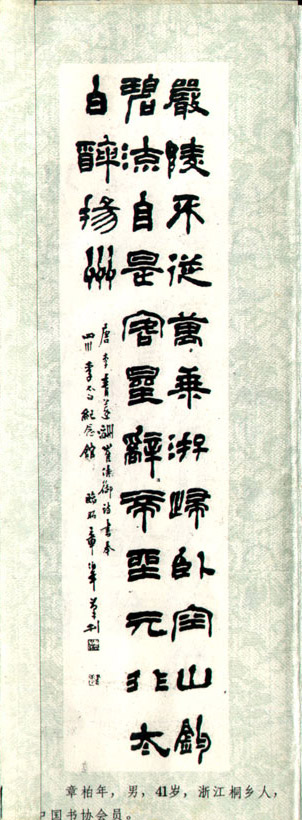 嚴陵不從萬乘游歸卧空山釣
碧流自是客星辭帝坐元非太
白醉揚州
唐李青蓮酬崔侍御詩書奉
四川李太白紀念館 章柏年
章柏年，男，41岁，浙江桐乡人，
中国书协会员。